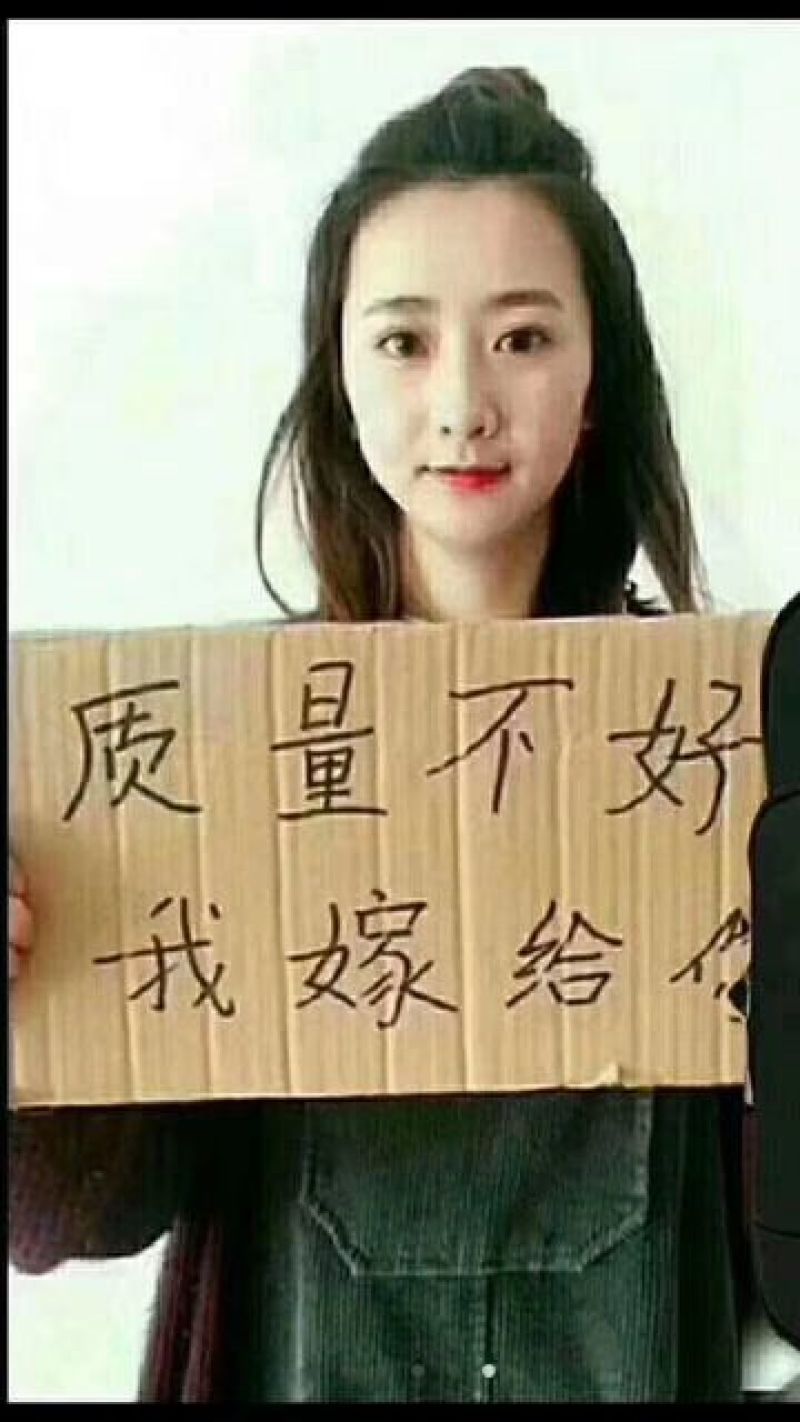 质量不好
我嫁给你